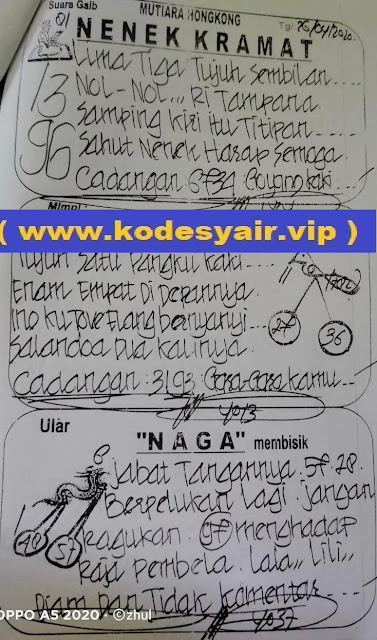 Suara Gaib
MUTIARA HONGKONG
01
NENEK KRAMAT
Lima Tiga Tujuh Sembilan....
13
NOL-NOL,,, Ri Tampana
Samping Kiri itu Titipan----
96
Sahut Nenek Harap Semoga.
Cadangan 6734 Goyang kaki
( www.kodesyair.vip )
Tujuh Satu Pangku kaki---
Enam Empat Di Depannya.
Elang bernyanyi...
27
36
Salandoa Dua kalinya.
Cadangan: 3193: Gara-Gara kamu---
4013
Ular
"NAGA" membisik
6
Jabat Tangannya. 57.28.
Berpelukan Lagi. Jangan
48
57
Ragukan. 97 menghadap
Raja Pembela. Lala,, Lili,,
Diam Dan Tidak Komentar
4037
OPPO A5 2020 · ©zhul